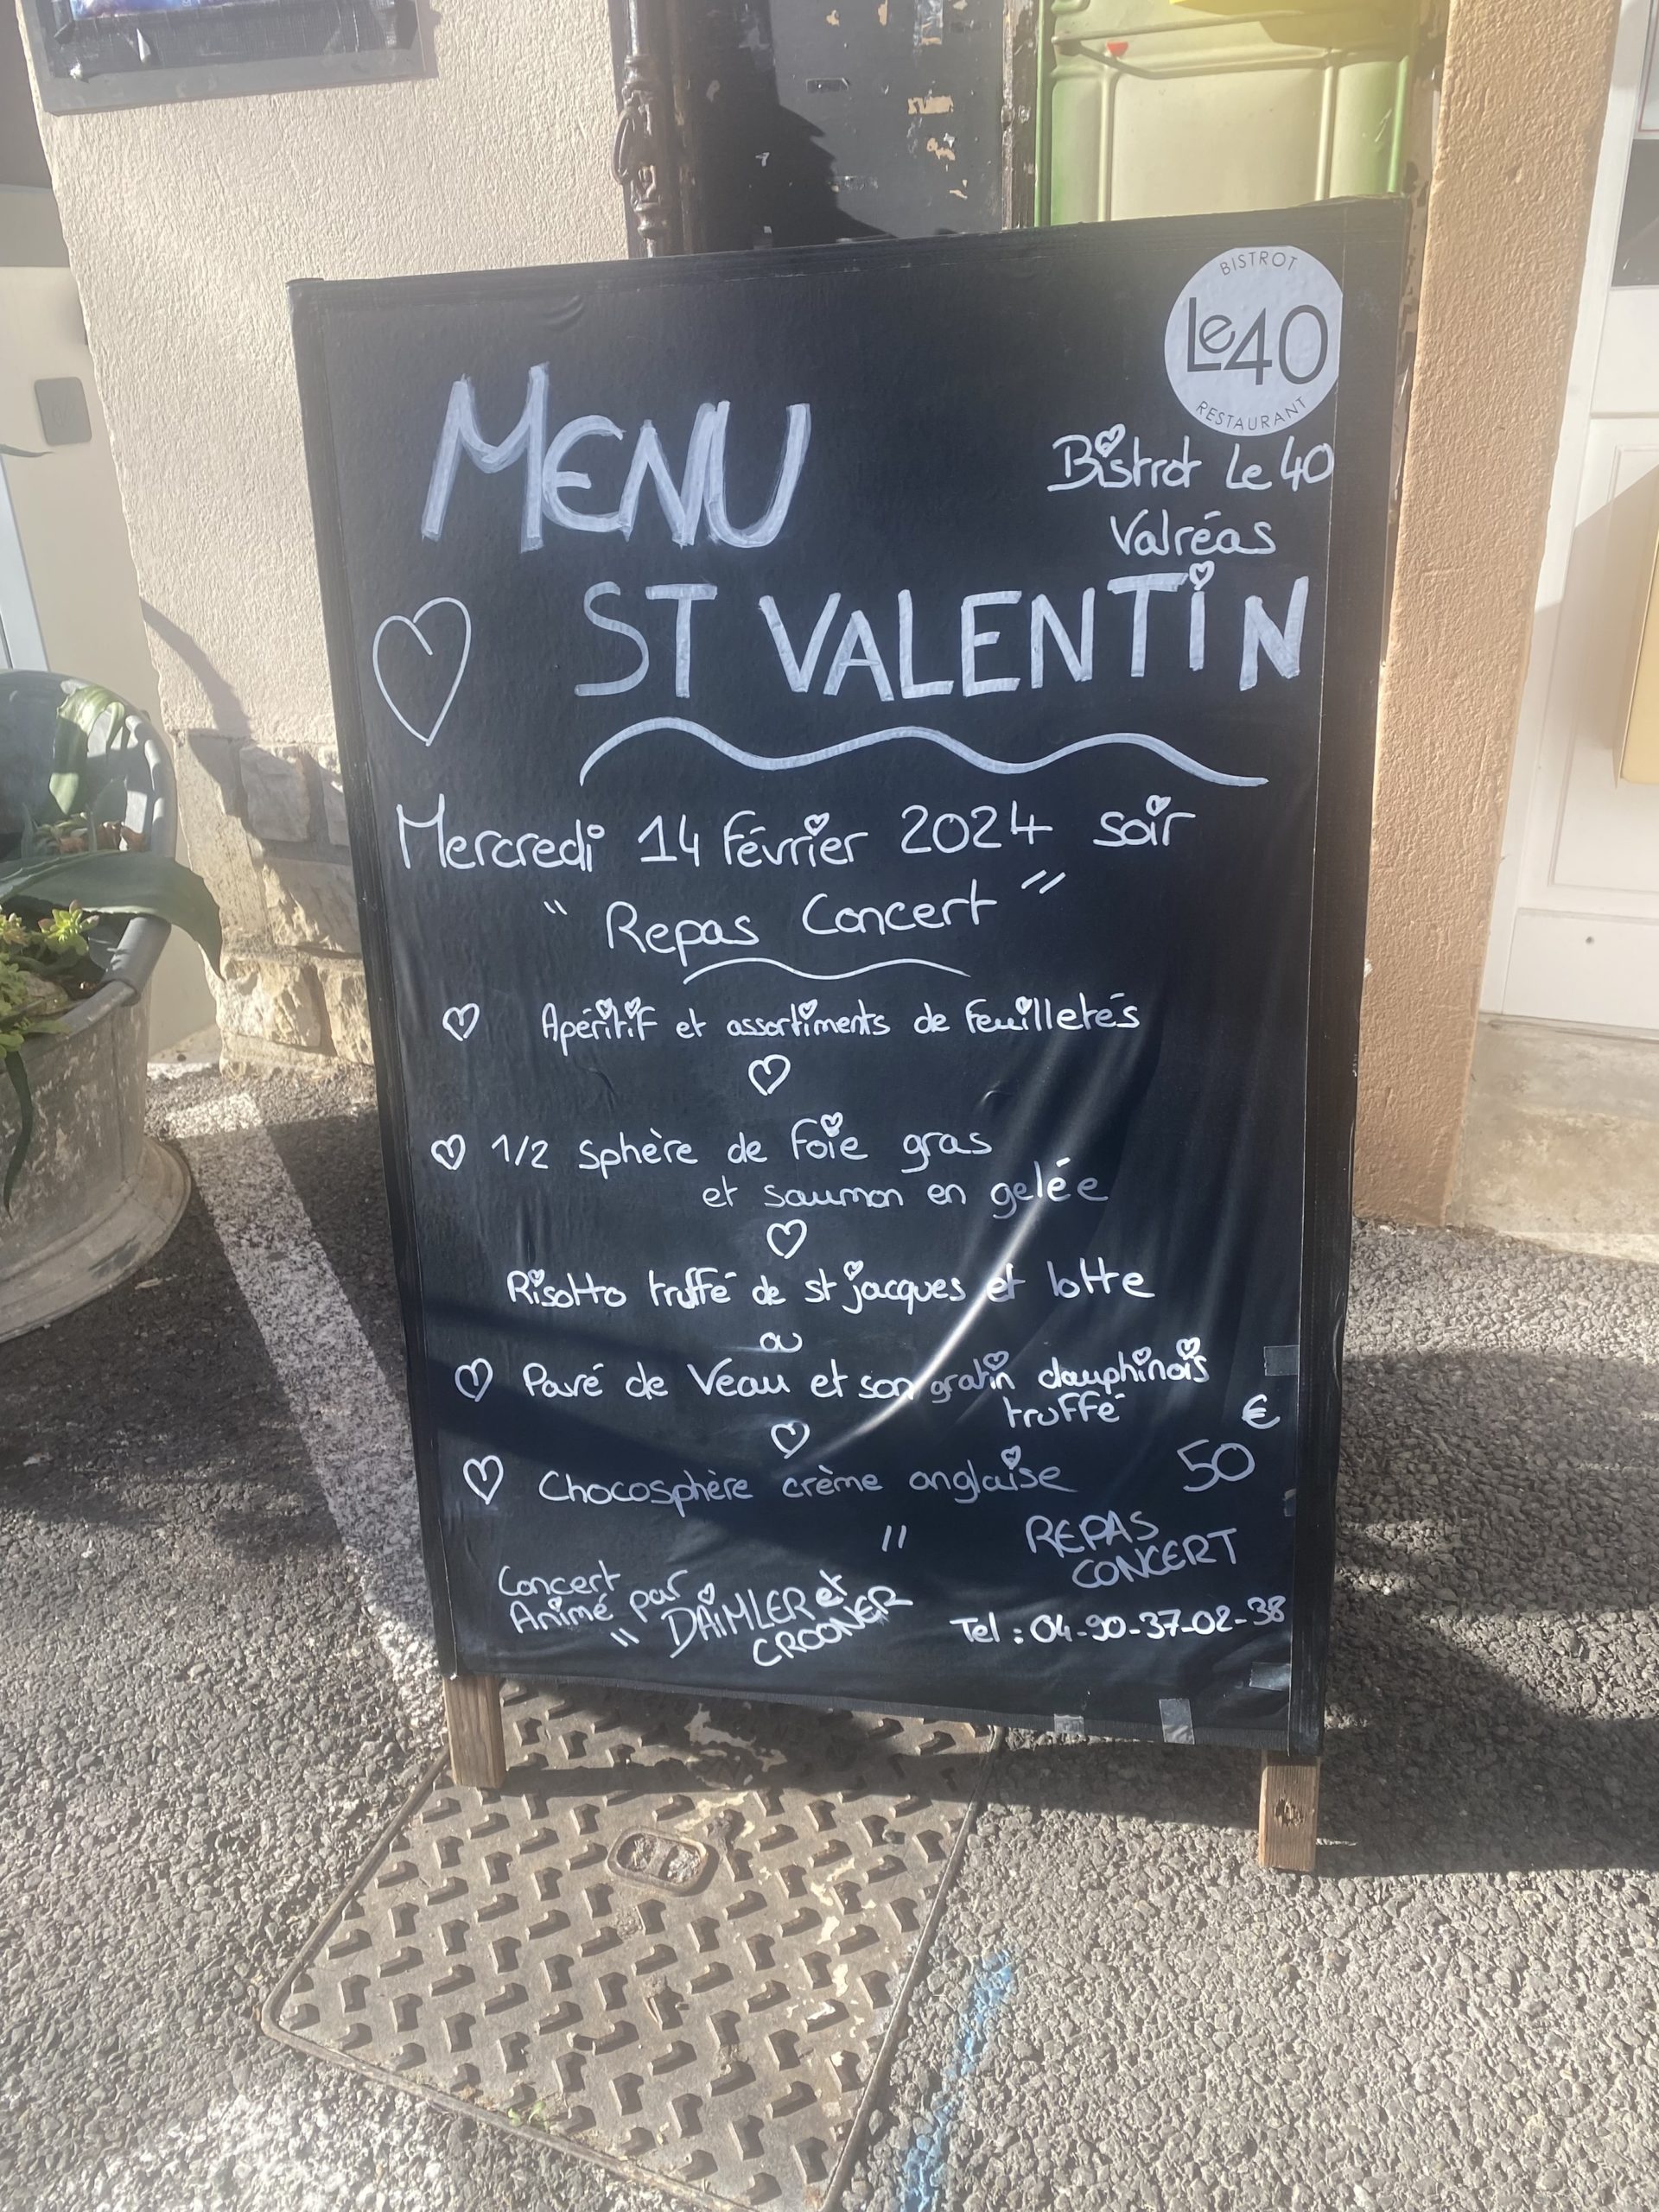 BISTROT
Le40
RESTAURANT
MENU
Bistrot Le 40
Valréas
ST VALENTiN
Mercredi 14 Février 2024 soir
" Repas Concert "
Apéritif et assortiments de Feuilletés
1/2 sphère de Foie gras
et saumon en gelée
Risotto truffé de st jacques et lotte
ou
Pavé de Veau et son gratin dauphinois
truffé
€
50
Chocosphère crème anglaise
REPAS
CONCERT
Concert
Animé par
" DAiMLER et
CROONER "
Tel : 04-90-37-02-38